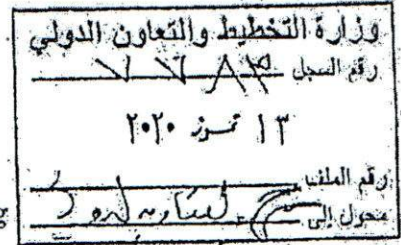 وزارة التخطيط والتعاون الدولي
رقم السجل ٧٧٨٣
١٣ تموز ٢٠٢٠
رقم الملف
محول إلى
g